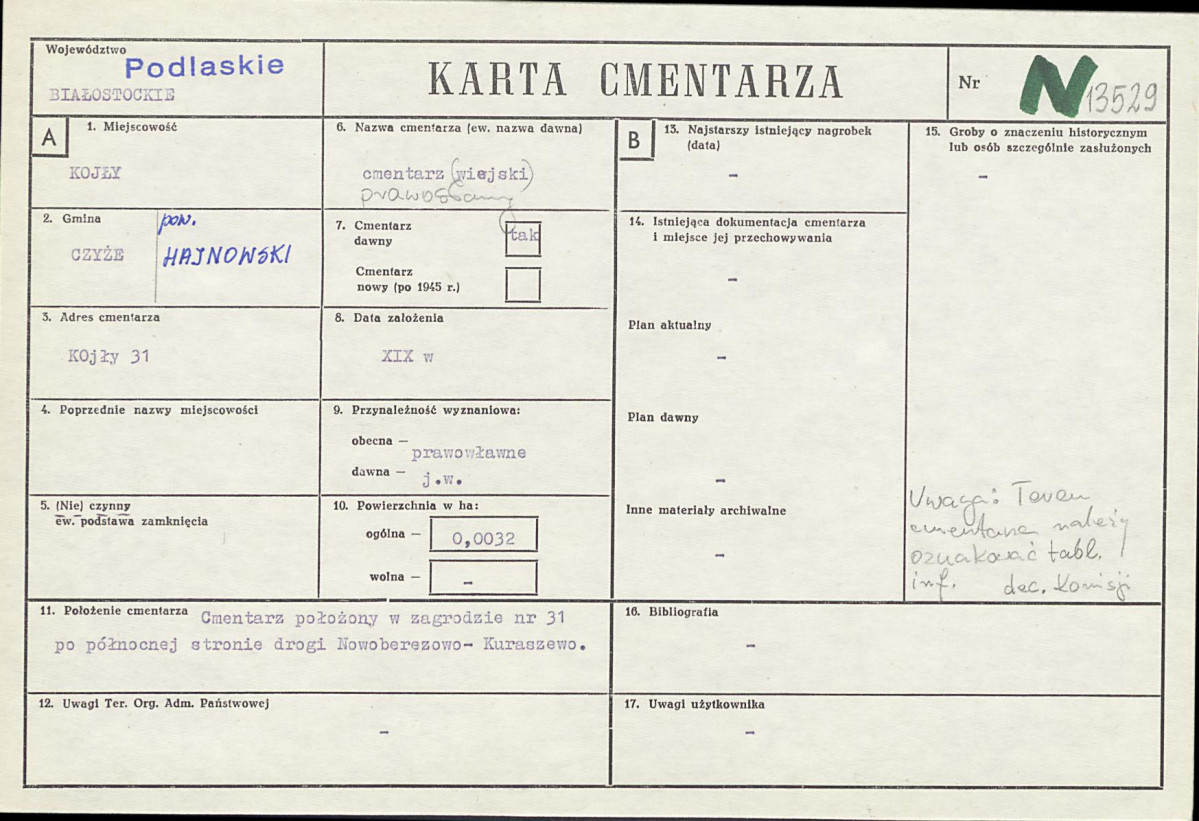 Województwo
Podlaskie
BIAŁOSTOCKIE
KARTA CMENTARZA
Nr N 13529
A
1. Miejscowość
KOJŁY
2. Gmina
CZYŻE
pow.
HAJNOWSKI
3. Adres cmentarza
KOjły 31
4. Poprzednie nazwy miejscowości
5. (Nie) czynny
ew. podstawa zamknięcia
6. Nazwa cmentarza (ew. nazwa dawna)
cmentarz (wiejski)
prawosławny
7. Cmentarz
dawny
tak
Cmentarz
nowy (po 1945 r.)
8. Data założenia
XIX w
9. Przynależność wyznaniowa:
obecna —
prawowławne
dawna — j.w.
10. Powierzchnia w ha:
ogólna — 0,0032
wolna — -
11. Położenie cmentarza Cmentarz położony w zagrodzie nr 31
po północnej stronie drogi Nowoberezowo- Kuraszewo.
12. Uwagi Ter. Org. Adm. Państwowej
-
B
13. Najstarszy istniejący nagrobek
(data)
-
14. Istniejąca dokumentacja cmentarza
i miejsce jej przechowywania
-
Plan aktualny
-
Plan dawny
-
Inne materiały archiwalne
-
15. Groby o znaczeniu historycznym
lub osób szczególnie zasłużonych
-
Uwaga: Teren
cmentarza należy
oznakować tabl.
inf. dec. Komisji
16. Bibliografia
-
17. Uwagi użytkownika
-